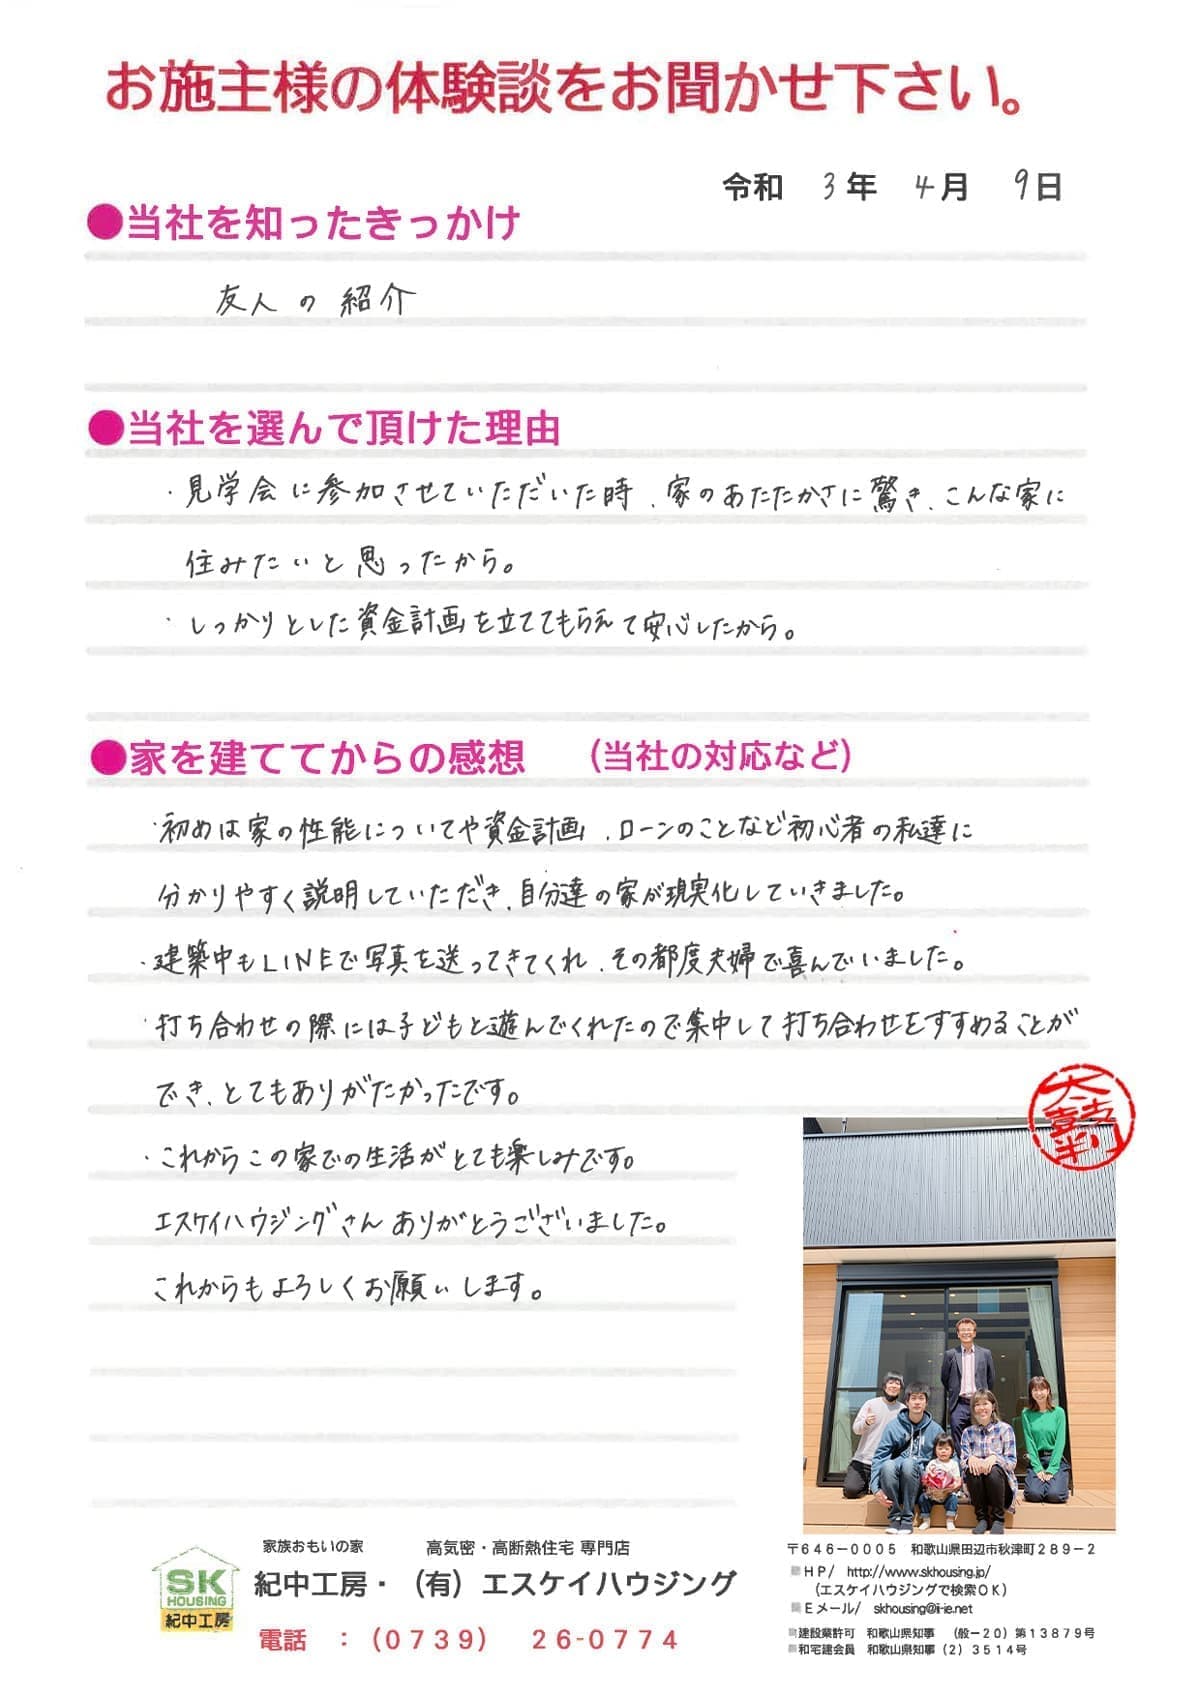 お施主様の体験談をお聞かせ下さい。
令和 3年 4月 9日
●当社を知ったきっかけ
友人の紹介
●当社を選んで頂けた理由
・見学会に参加させていただいた時、家のあたたかさに驚き、こんな家に
住みたいと思ったから。
・しっかりとした資金計画を立ててもらえて安心したから。
●家を建ててからの感想 （当社の対応など）
・初めは家の性能についてや資金計画、ローンのことなど初心者の私達に
分かりやすく説明していただき、自分達の家が現実化していきました。
・建築中もLINEで写真を送ってきてくれ、その都度夫婦で喜んでいました。
・打ち合わせの際には子どもと遊んでくれたので集中して打ち合わせをすすめることが
でき、とてもありがたかったです。
・これからこの家での生活がとても楽しみです。
エスケイハウジングさんありがとうございました。
これからもよろしくお願いします。
大喜
家族おもいの家 高気密・高断熱住宅 専門店
SK
HOUSING
紀中工房
紀中工房・（有）エスケイハウジング
電話 ：（0739） 26-0774
〒646－0005 和歌山県田辺市秋津町289－2
HP/ http://www.skhousing.jp/
（エスケイハウジングで検索OK）
Eメール/ skhousing@ii-ie.net
建設業許可 和歌山県知事 （般－20）第13879号
和宅建会員 和歌山県知事（2）3514号